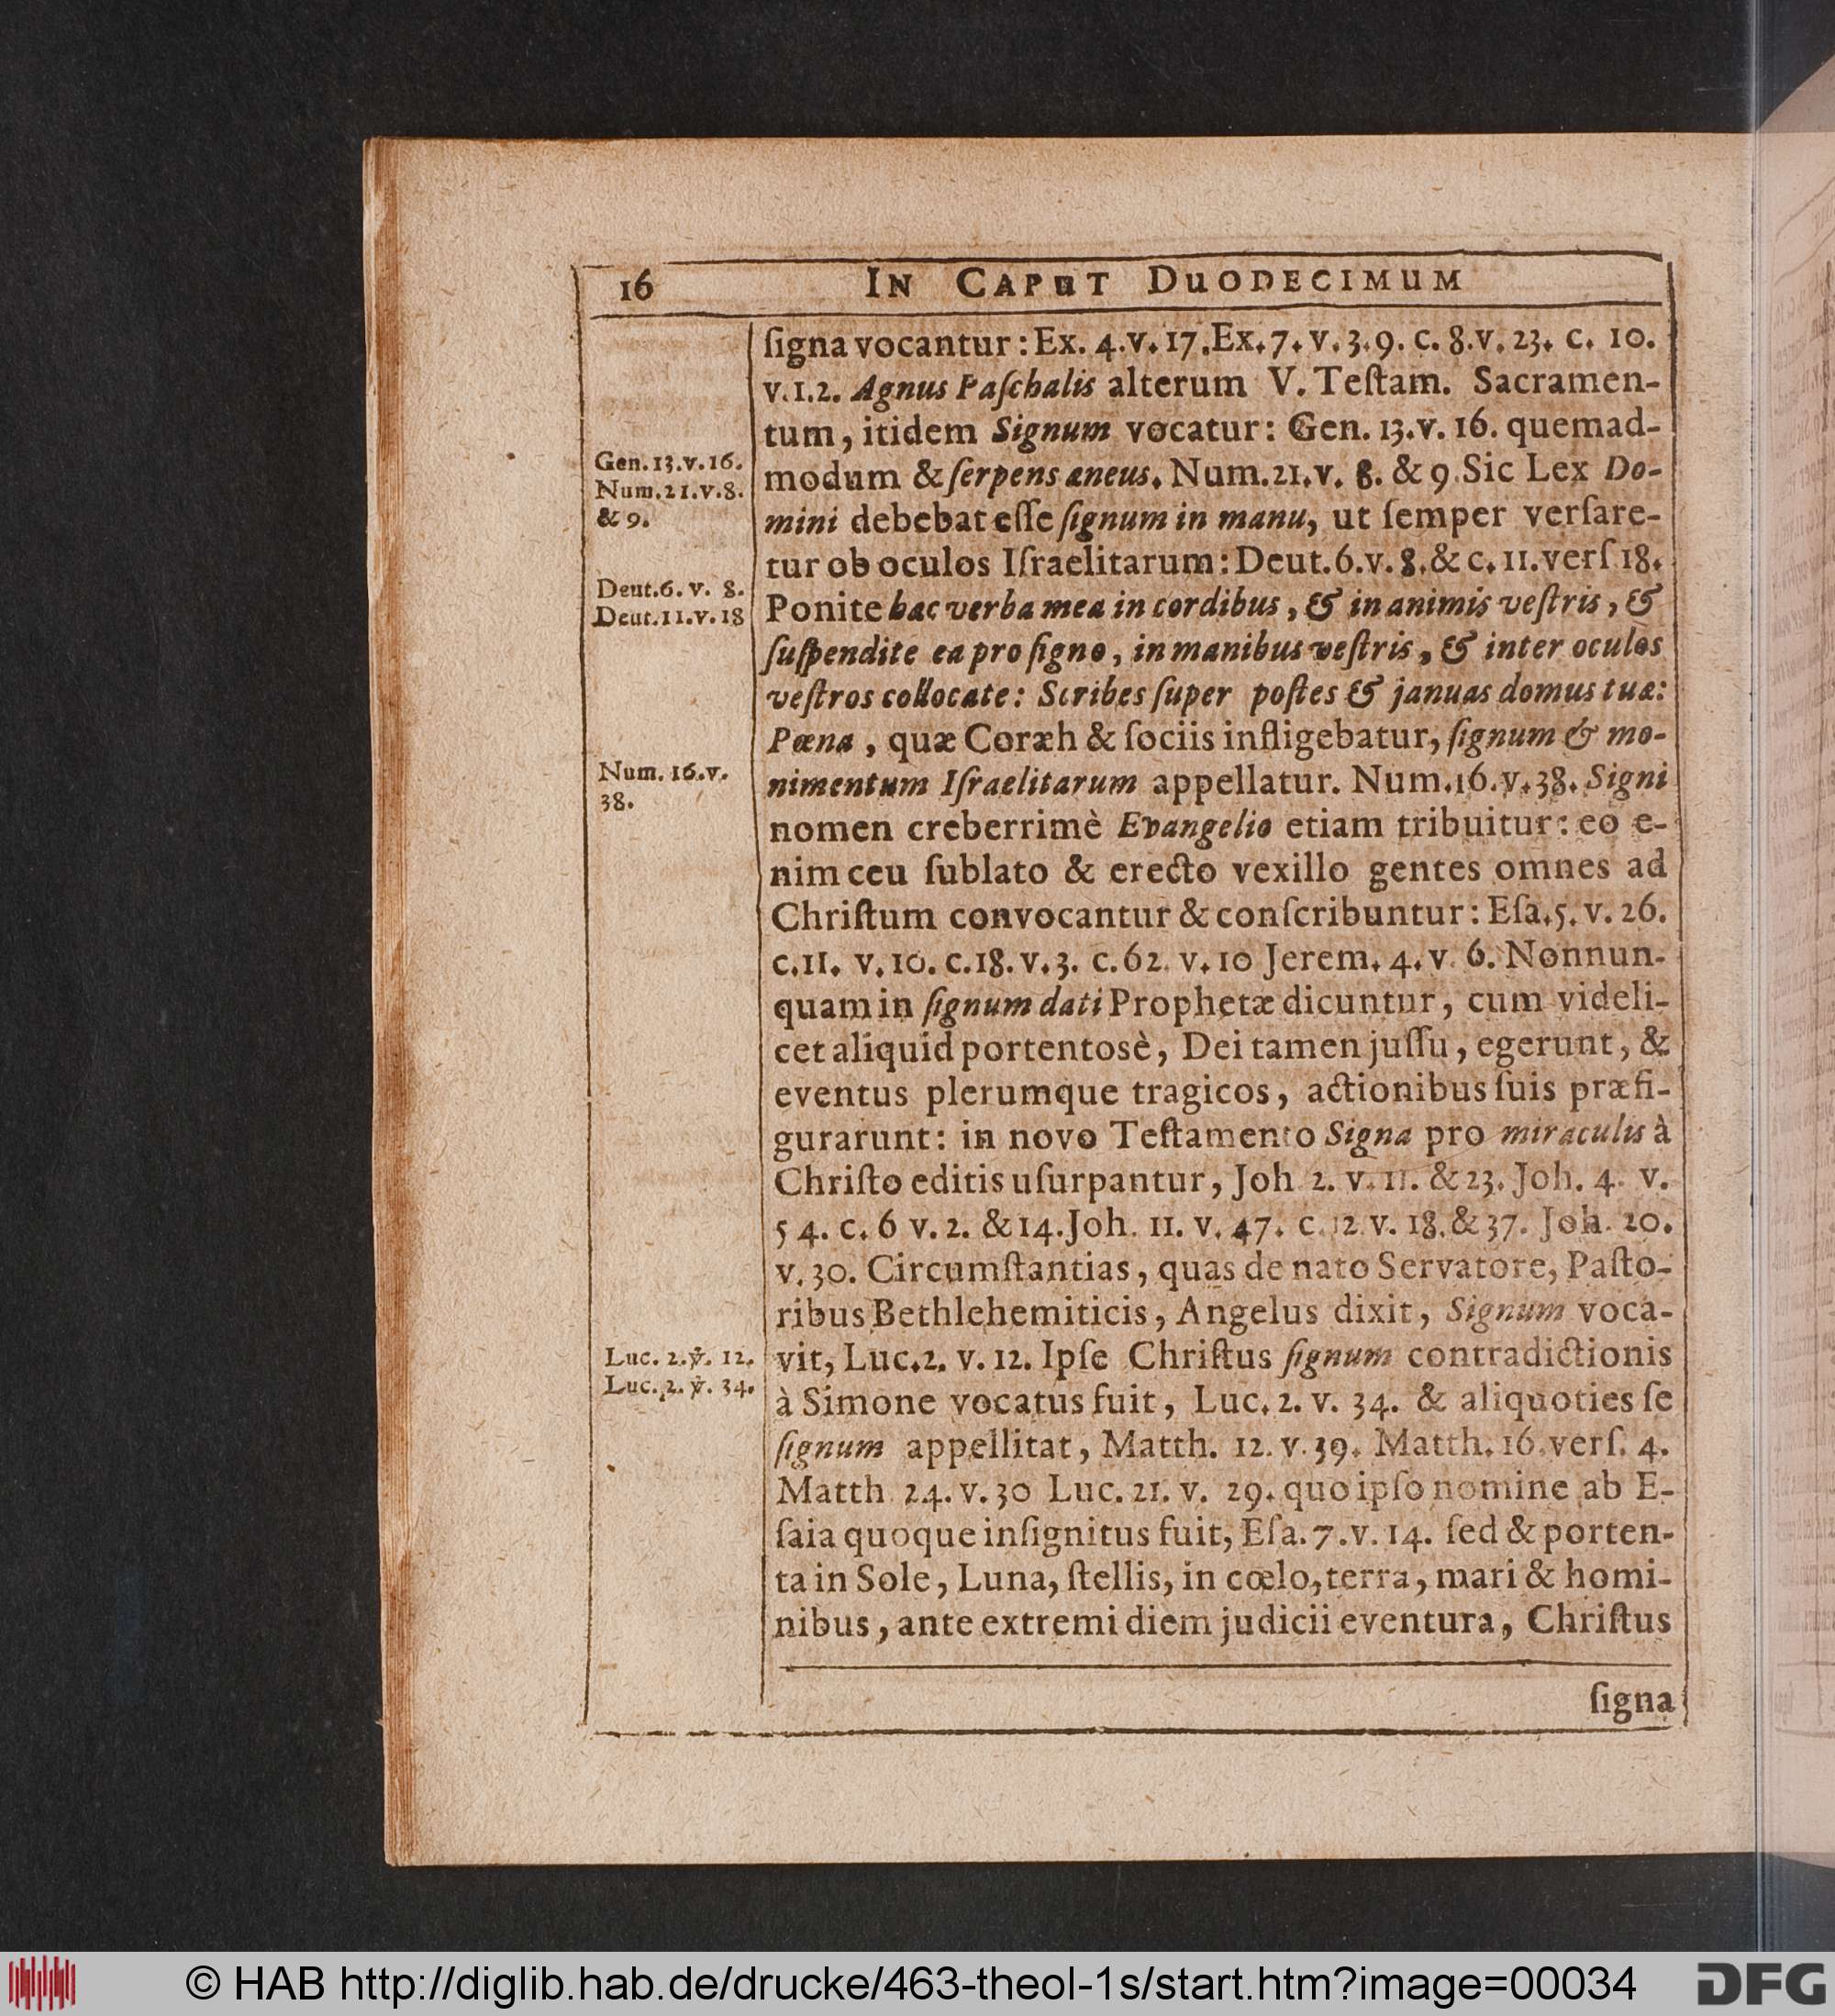 16 IN CAPUT DUODECIMUM
ſigna vocantur: Ex. 4. v. 17. Ex. 7. v. 3. 9. c. 8. v. 23. c. 10.
v. 1. 2. Agnus Paſchalis alterum V. Teſtam. Sacramen-
tum, itidem Signum vocatur: Gen. 13. v. 16. quemad-
Gen. 13. v. 16.
Num. 21. v. 8.
& 9.
modum & ſerpens æneus. Num. 21. v. 8. & 9. Sic Lex Do-
mini debebat eſſe ſignum in manu, ut ſemper verſare-
tur ob oculos Iſraelitarum: Deut. 6. v. 8. & c. 11. verſ 18.
Deut. 6. v. 8.
Deut. 11. v. 18
Ponite hac verba mea in cordibus, & in animis veſtris, &
ſuſpendite ea pro ſigno, in manibus veſtris, & inter oculos
veſtros collocate: Scribes ſuper poſtes & januas domus tuæ:
Pœna, quæ Coræh & ſociis infligebatur, ſignum & mo-
Num. 16. v.
38.
nimentum Iſraelitarum appellatur. Num. 16. v. 38. Signi
nomen creberrimè Evangelio etiam tribuitur: eo e-
nim ceu ſublato & erecto vexillo gentes omnes ad
Chriſtum convocantur & conſcribuntur: Eſa. 5. v. 26.
c. 11. v. 10. c. 18. v. 3. c. 62. v. 10 Jerem. 4. v. 6. Nonnun-
quam in ſignum dati Prophetæ dicuntur, cum videli-
cet aliquid portentosè, Dei tamen juſſu, egerunt, &
eventus plerumque tragicos, actionibus ſuis præfi-
gurarunt: in novo Teſtamento Signa pro miraculis à
Chriſto editis uſurpantur, Joh 2. v. 11. & 23. Joh. 4. v.
54. c. 6 v. 2. & 14. Joh. 11. v. 47. c. 12 v. 18. & 37. Joh. 20.
v. 30. Circumſtantias, quas de nato Servatore, Paſto-
ribus Bethlehemiticis, Angelus dixit, Signum voca-
Luc. 2. v̓. 12.
Luc. 2. v̓. 34.
vit, Luc. 2. v. 12. Ipſe Chriſtus ſignum contradictionis
à Simone vocatus fuit, Luc. 2. v. 34. & aliquoties ſe
ſignum appellitat, Matth. 12. v. 39. Matth. 16. verſ. 4.
Matth 24. v. 30 Luc. 21. v. 29. quo ipſo nomine ab E-
ſaia quoque inſignitus fuit, Eſa. 7. v. 14. ſed & porten-
ta in Sole, Luna, ſtellis, in cœlo, terra, mari & homi-
nibus, ante extremi diem judicii eventura, Chriſtus
ſigna
© HAB http://diglib.hab.de/drucke/463-theol-1s/start.htm?image=00034
DFG